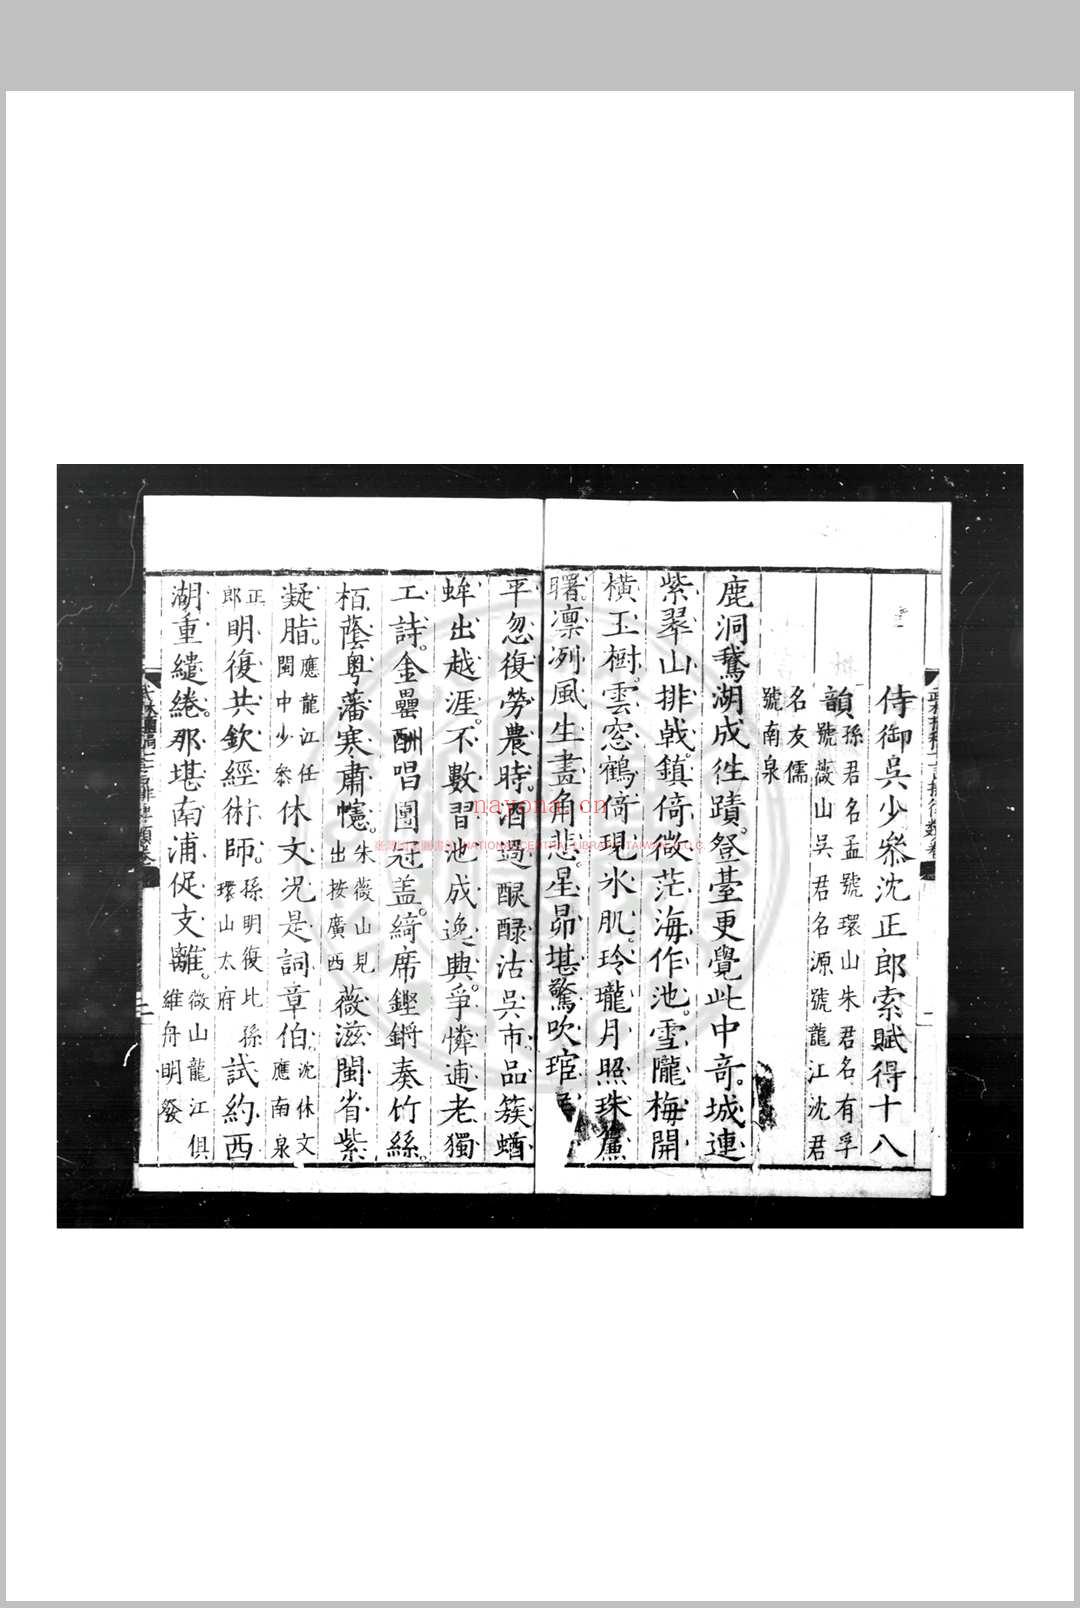 侍御吳少叅沈正郎索賦得十八
韻孫君名孟號環山朱君名有孚
號薇山吳君名源號龍江沈君
名友儒
號南泉
鹿洞鵞湖成徃蹟。登臺更覺此中竒。城連
紫翠山排戟。鎮倚微茫海作池。雪隴梅開
橫玉樹。雲窓鶴倚現氷肌。玲瓏月照珠簾
曙。凛冽風生畫角悲。星昴堪驚吹琯
平忽復勞農時。酒過醁沽吳市品簇蝤
蛑出越涯。不數習池成逸興。爭憐逋老獨
工詩。金罍酬唱團冠盖。綺席鏗鏘奏竹絲。
栢蔭粤藩寒肅幰。朱薇山見
出按廣西薇滋閩省紫
凝脂。應龍江任
閩中少叅休文况是詞章伯。沈休文
應南泉
正
郎明復共欽經術師。孫明復比孫
環山太府試約西
湖重繾綣。那堪南浦促支離。薇山龍江俱
維舟明發
nayona.cn